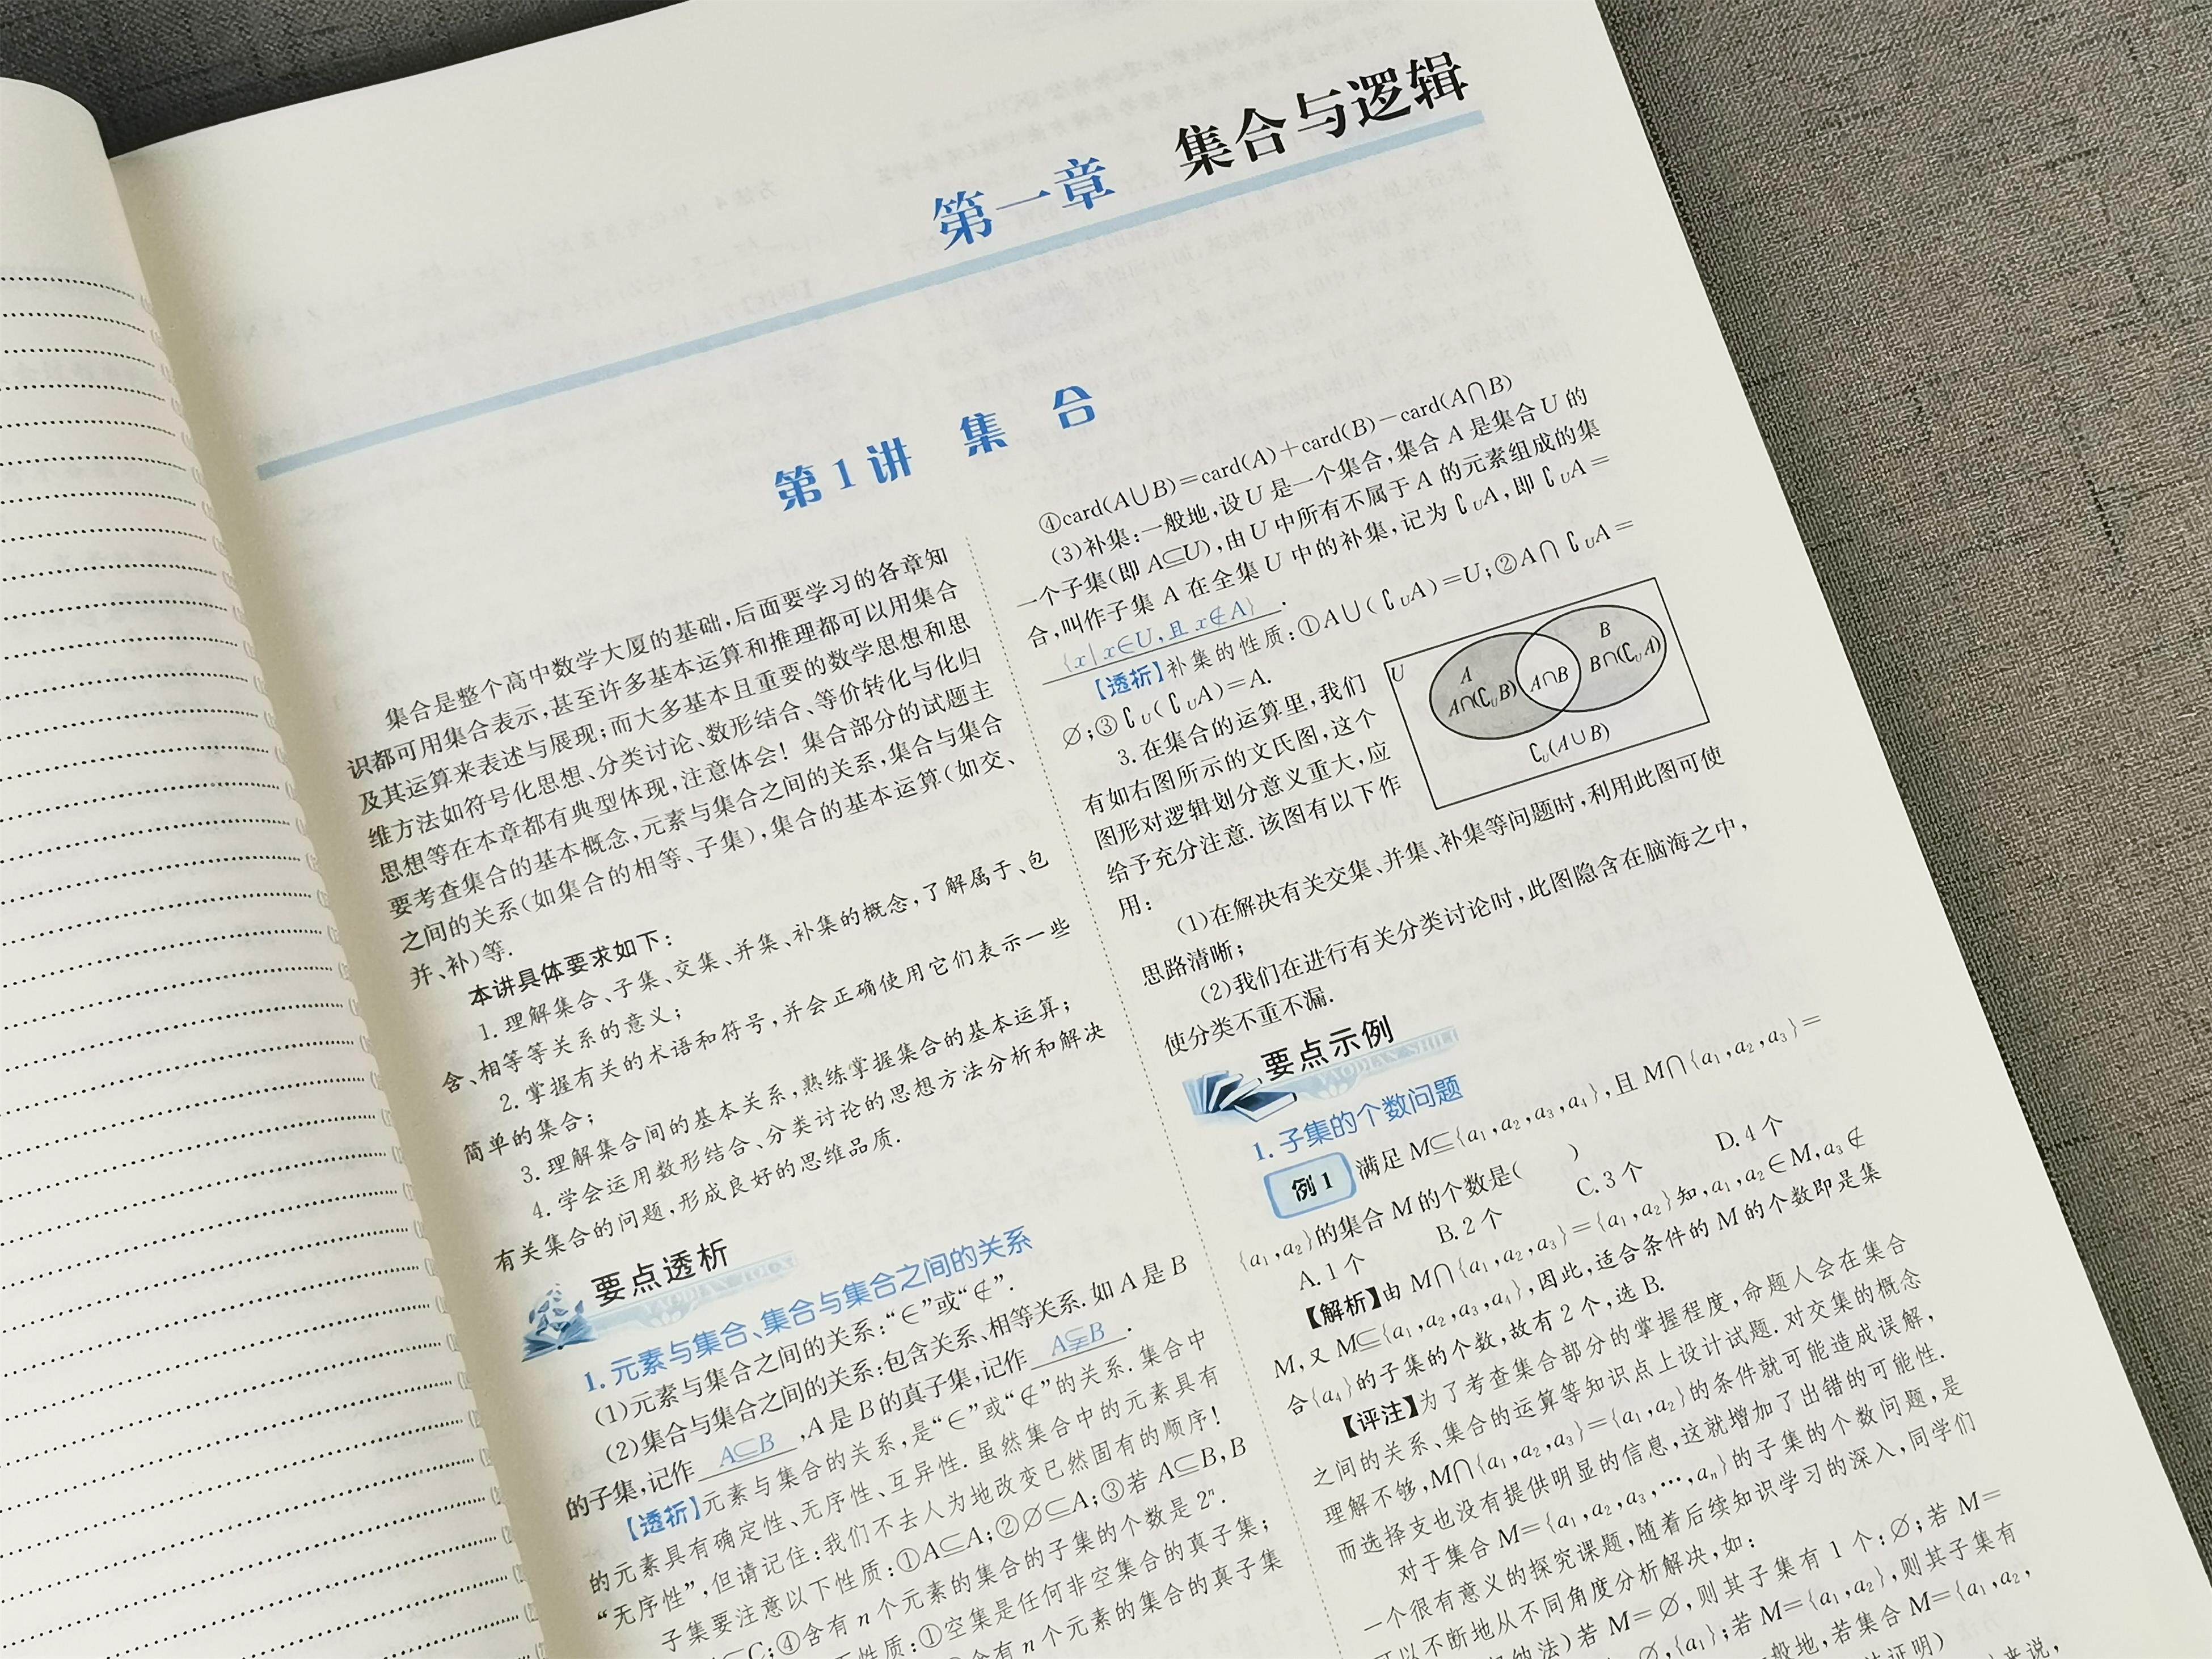 第一章 集合与逻辑
第1讲 集 合
集合是整个高中数学大厦的基础,后面要学习的各章知
识都可用集合表示,甚至许多基本运算和推理都可以用集合
及其运算来表述与展现;而大多基本且重要的数学思想和思
维方法如符号化思想、分类讨论、数形结合、等价转化与化归
思想等在本章都有典型体现,注意体会!集合部分的试题主
要考查集合的基本概念,元素与集合之间的关系,集合与集合
之间的关系(如集合的相等、子集),集合的基本运算(如交、
并、补)等.
本讲具体要求如下:
1. 理解集合、子集、交集、并集、补集的概念,了解属于、包
含、相等等关系的意义;
2. 掌握有关的术语和符号,并会正确使用它们表示一些
简单的集合;
3. 理解集合间的基本关系,熟练掌握集合的基本运算;
4. 学会运用数形结合、分类讨论的思想方法分析和解决
有关集合的问题,形成良好的思维品质.
要点透析
1. 元素与集合、集合与集合之间的关系
(1)元素与集合之间的关系:“∈”或“∉”.
(2)集合与集合之间的关系:包含关系、相等关系. 如 A 是 B
的子集,记作 A⊆B ,A 是 B 的真子集,记作 A⫋B .
【透析】元素与集合的关系,是“∈”或“∉”的关系. 集合中
的元素具有确定性、无序性、互异性. 虽然集合中的元素具有
“无序性”,但请记住:我们不去人为地改变已然固有的顺序!
子集要注意以下性质:①A⊆A;②∅⊆A;③若 A⊆B,B
⊆C;④含有 n 个元素的集合的子集的个数是 2ⁿ.
性质:①空集是任何非空集合的真子集;
含有 n 个元素的集合的真子集
④card(A∪B)=card(A)+card(B)-card(A∩B)
(3)补集:一般地,设 U 是一个集合,集合 A 是集合 U 的
一个子集(即 A⊆U),由 U 中所有不属于 A 的元素组成的集
合,叫作子集 A 在全集 U 中的补集,记为 ∁UA,即 ∁UA=
{x|x∈U,且 x∉A} .
【透析】补集的性质:①A∪(∁UA)=U;②A∩∁UA=
∅;③∁U(∁UA)=A.
3. 在集合的运算里,我们
有如右图所示的文氏图,这个
图形对逻辑划分意义重大,应
给予充分注意. 该图有以下作
用:
U
A
A∩(∁UB)
A∩B
B
B∩(∁UA)
∁U(A∪B)
(1)在解决有关交集、并集、补集等问题时,利用此图可使
思路清晰;
(2)我们在进行有关分类讨论时,此图隐含在脑海之中,
使分类不重不漏.
要点示例
YAODIAN SHILI
1. 子集的个数问题
例1 满足 M⊆{a₁,a₂,a₃,a₄},且 M∩{a₁,a₂,a₃}=
{a₁,a₂}的集合 M 的个数是( )
A. 1 个 B. 2 个 C. 3 个 D. 4 个
【解析】由 M∩{a₁,a₂,a₃}={a₁,a₂}知,a₁,a₂∈M,a₃∉
M,又 M⊆{a₁,a₂,a₃,a₄},因此,适合条件的 M 的个数即是集
合{a₄}的子集的个数,故有 2 个,选 B.
【评注】为了考查集合部分的掌握程度,命题人会在集合
之间的关系、集合的运算等知识点上设计试题. 对交集的概念
理解不够,M∩{a₁,a₂,a₃}={a₁,a₂}的条件就可能造成误解,
而选择支也没有提供明显的信息,这就增加了出错的可能性.
对于集合 M={a₁,a₂,a₃,…,aₙ}的子集的个数问题,是
一个很有意义的探究课题,随着后续知识学习的深入,同学们
可以不断地从不同角度分析解决,如:
纳法)若 M=∅,则其子集有 1 个:∅;若 M=
∅,{a₁};若 M={a₁,a₂},则其子集有
般地,若集合 M={a₁,a₂,
证明)
来说,